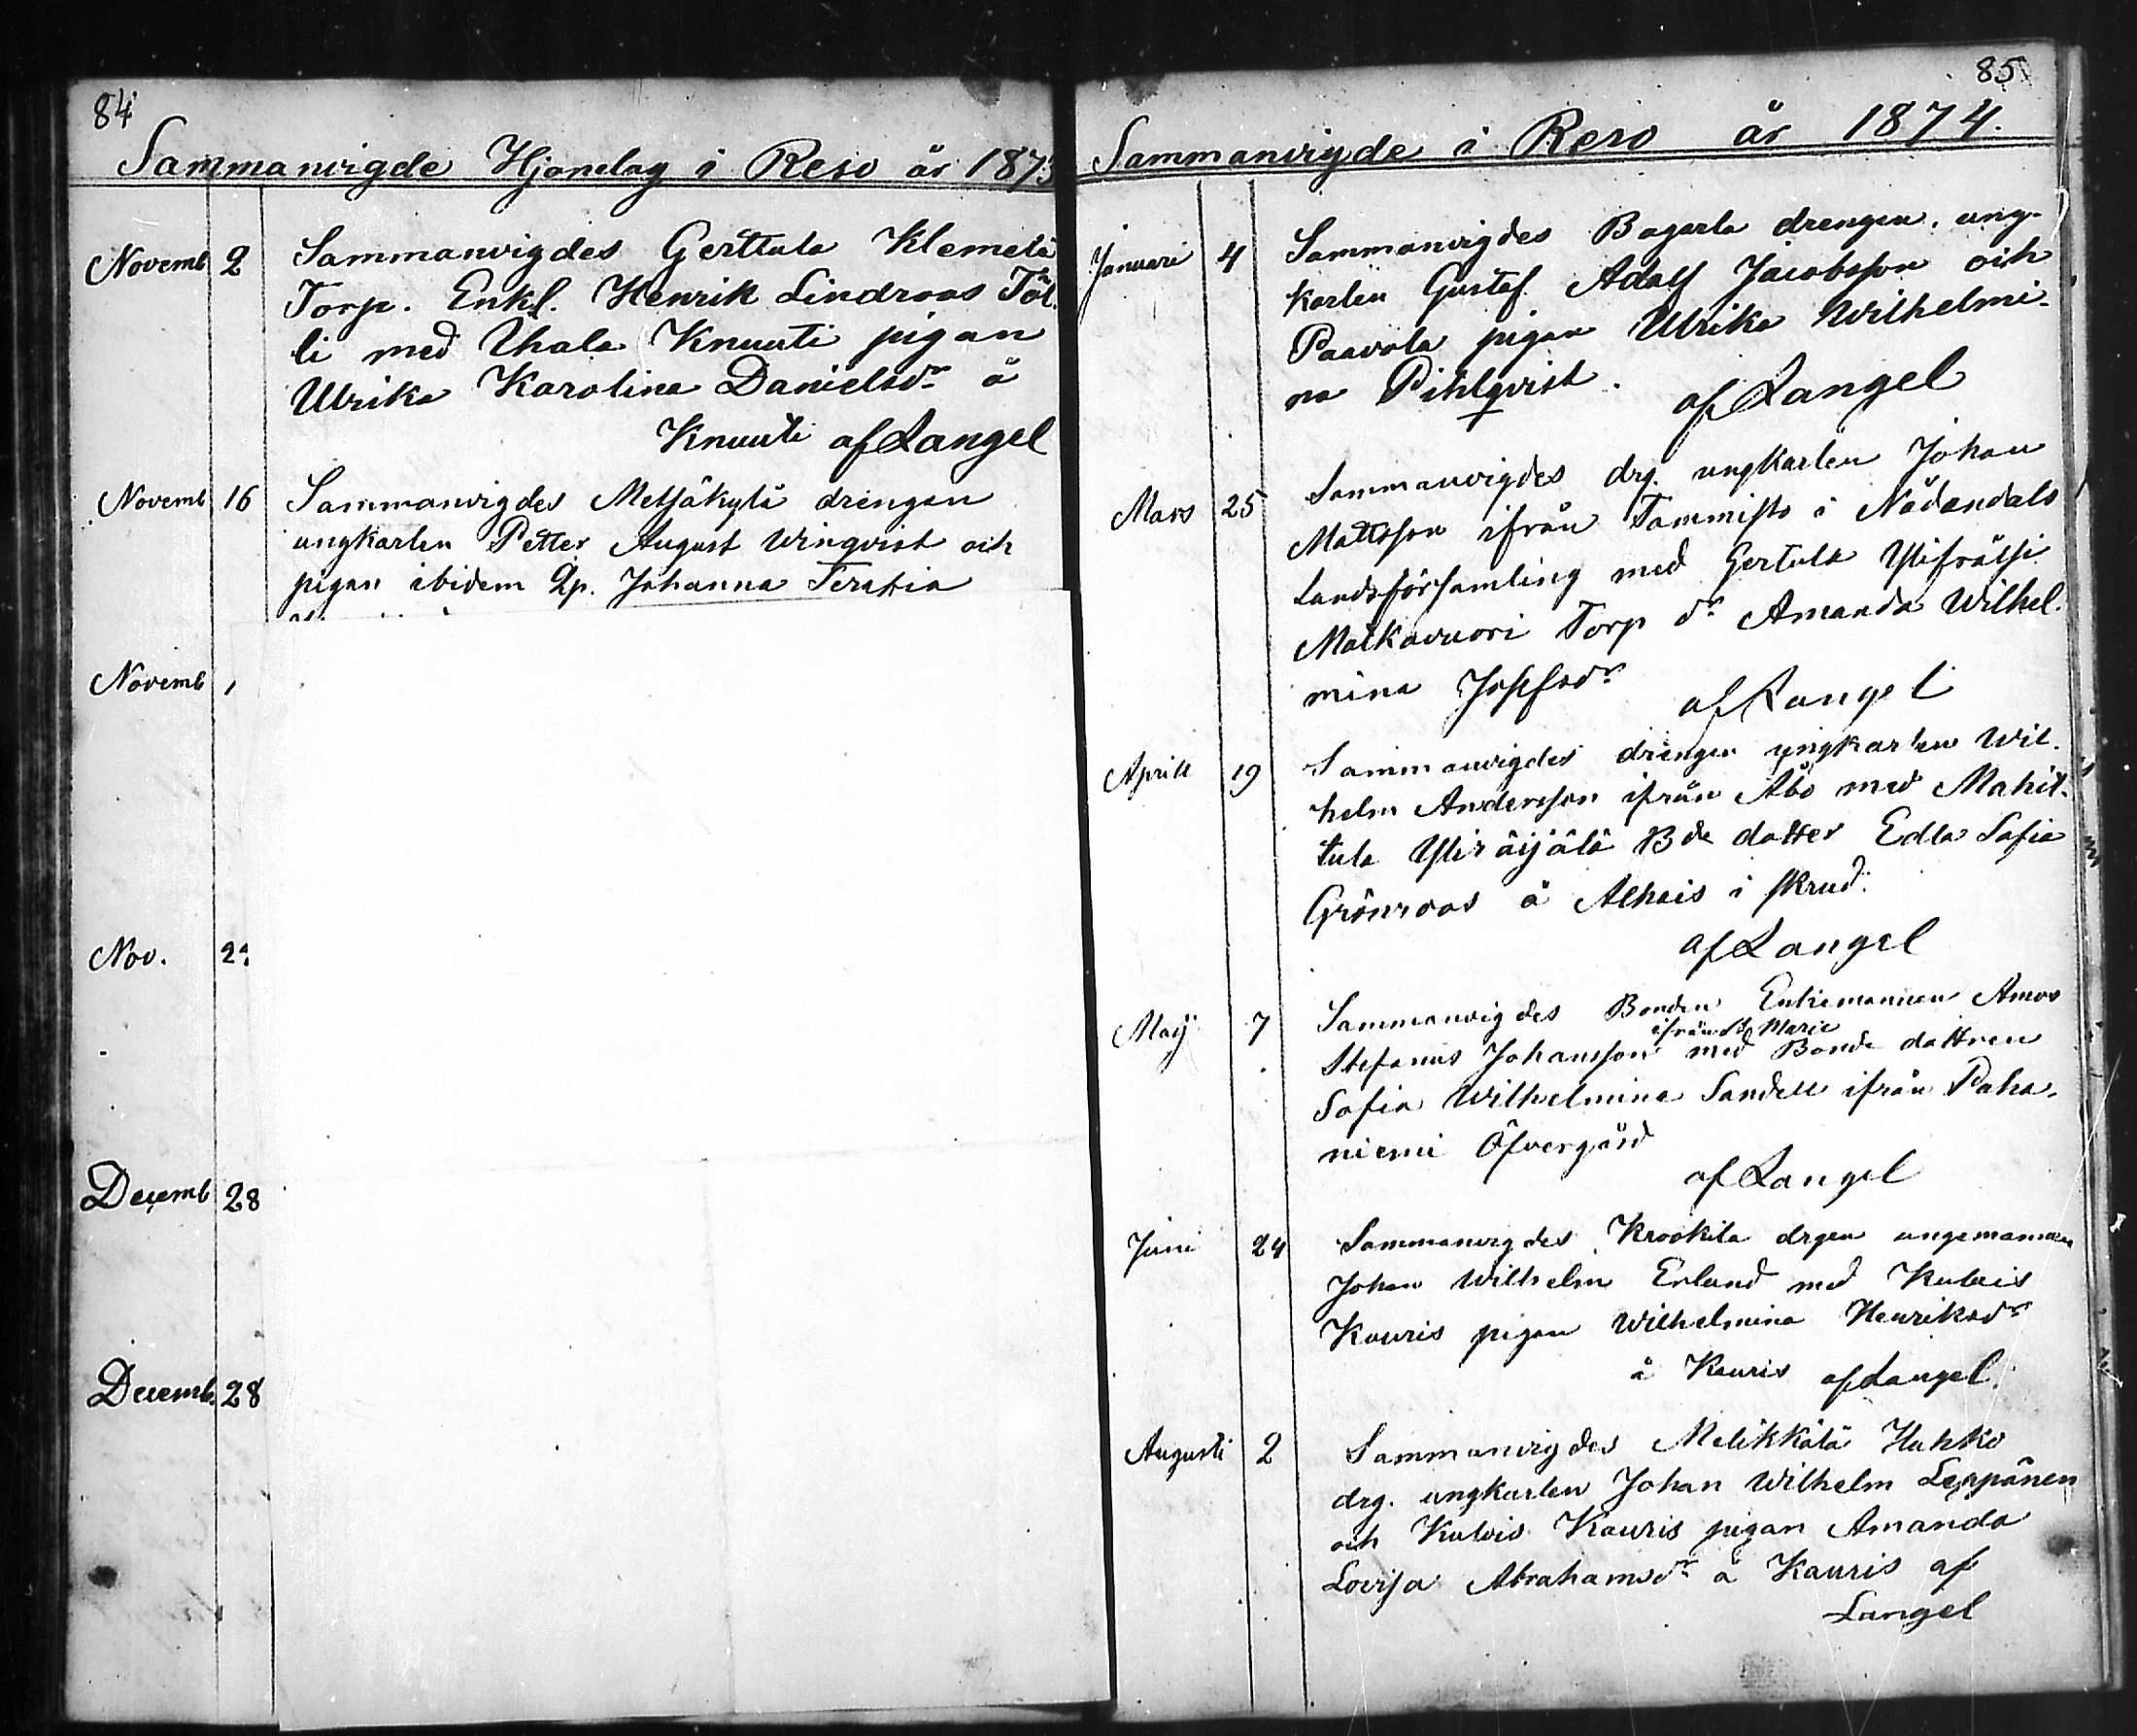 84
Sammanvigde Hjonelag i Reso år 1873
Novemb 2 Sammanvigdes Gerttula Klemelä
Torp. Enkl. Henrik Lindroos Töl-
li med Uhala Knuuti pigan
Ulrika Karolina Danielsdr å
Knuuti af Langel
Novemb 16 Sammanvigdes Metsäkylä drengen
ungkarlen Petter August Winqvist och
pigan ibidem Qp. Johanna Serafia
Novemb
Nov. 2
Decemb 28
Decemb. 28
85
Sammanvigde i Reso år 1874.
Januari 4 Sammanvigdes Bagarla drengen, ung-
karlen Gustaf Adolf Jacobsson och
Paavola pigan Ulrika Wilhelmi-
na Pihlqvist. af Langel
Mars 25 Sammanvigdes drg. ungkarlen Johan
Mattsson ifrån Tammisto i Nådendals
Landsförsamling med Gertula Ylifrälsi
Matkavuori Torp dr Amanda Wilhel-
mina Josefsdr af Langel
Aprill 19 Sammanvigdes drengen ungkarlen Wil-
helm Andersson ifrån Åbo med Mahit-
tula Yliräijälä Bde dotter Edla Sofia
Grönroos å Alhais i skrud.
af Langel
Maÿ 7 Sammanvigdes Bonden Enkemannen Amos
ifrån St Marie
Stefanus Johansson med Bonde dottren
Sofia Wilhelmina Sandell ifrån Paha-
niemi Öfvergård
af Langel
Juni 24 Sammanvigdes Krookila drgen ungemannen
Johan Wilhelm Erlund med Kulvis
Kauris pigan Wilhelmina Henriksdr
å Kauris af Langel.
Augusti 2 Sammanvigdes Melikkälä Huhko
drg. ungkarlen Johan Wilhelm Leppänen
och Kulvis Kauris pigan Amanda
Lovisa Abrahamsdr å Kauris af
Langel